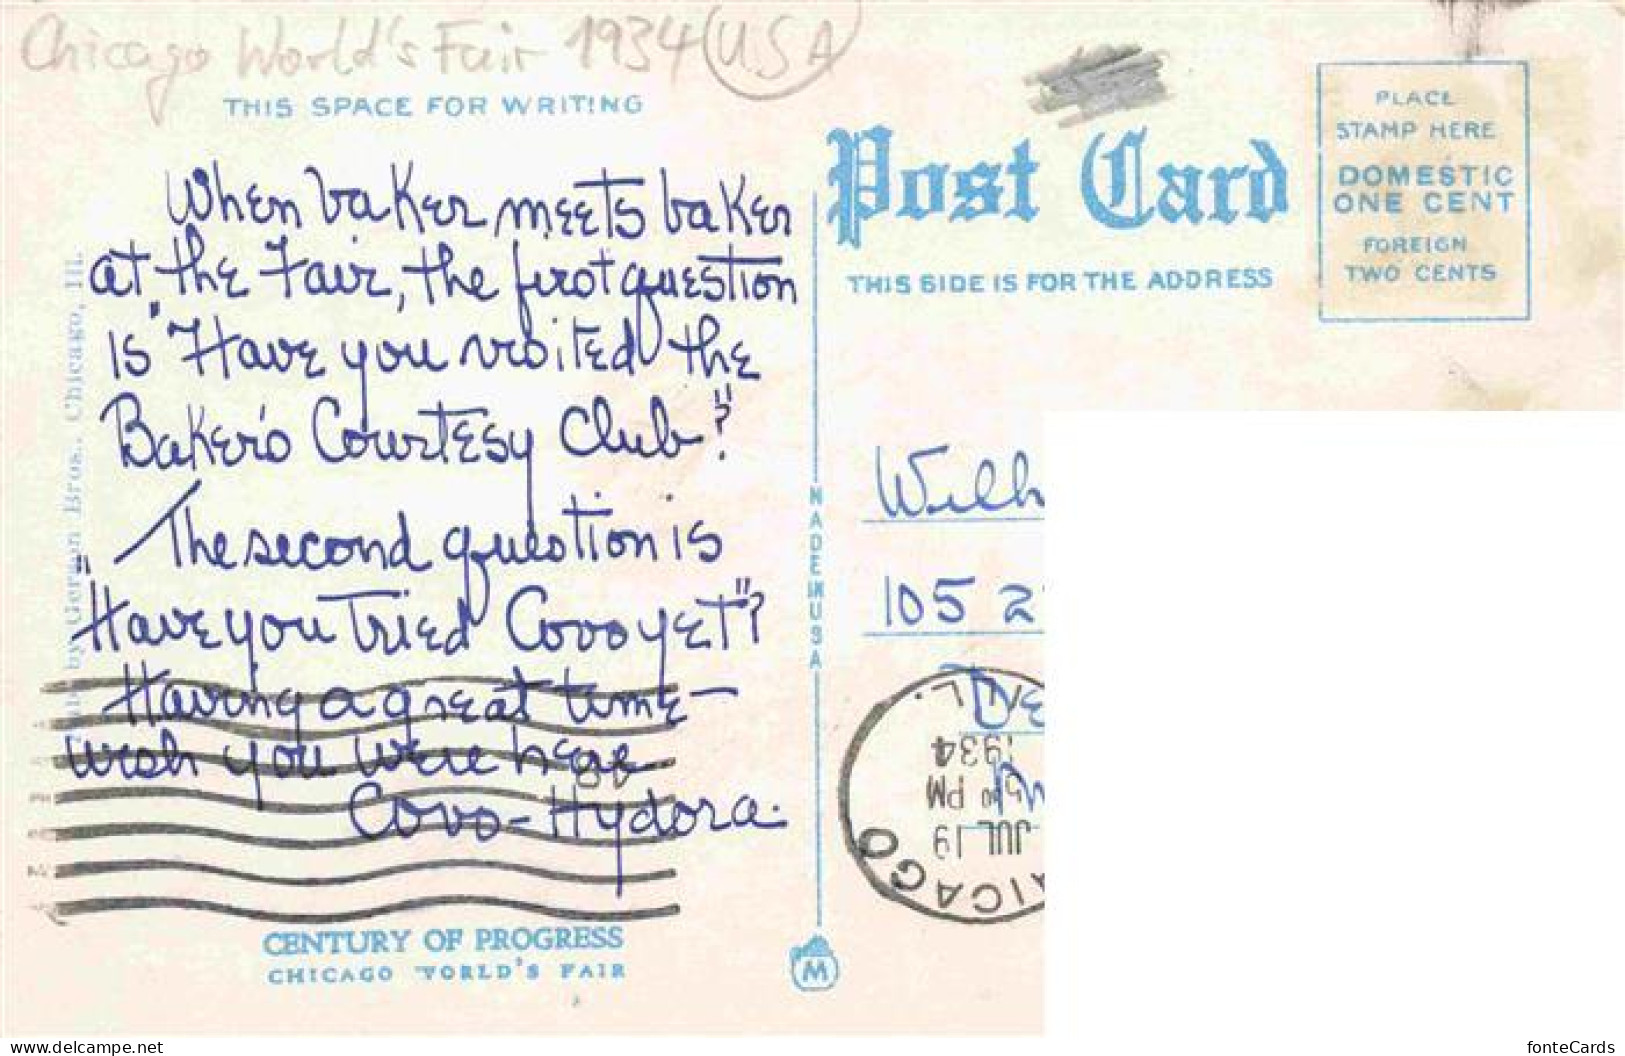 Chicago World's Fair 1934 (U.S.A)
THIS SPACE FOR WRITING
When baker meets baker
at the Fair, the first question
is "Have you visited the
Baker's Courtesy Club"?
The second question is
"Have you tried Covo yet"?
Having a great time—
wish you were here
Covo-Hydora.
CENTURY OF PROGRESS
CHICAGO WORLD'S FAIR
by Gerson Bros., Chicago, Ill.
MADE IN USA
M
Post Card
THIS SIDE IS FOR THE ADDRESS
PLACE
STAMP HERE
DOMESTIC
ONE CENT
FOREIGN
TWO CENTS
Wilh
105 2
De
CHICAGO
ILL.
JUL 19
PM
1934
delcampe.net
fonteCards